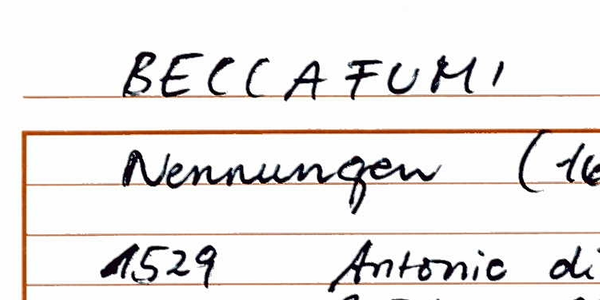 BECCAFUMI
Nennungen (16
1529 Antonio di